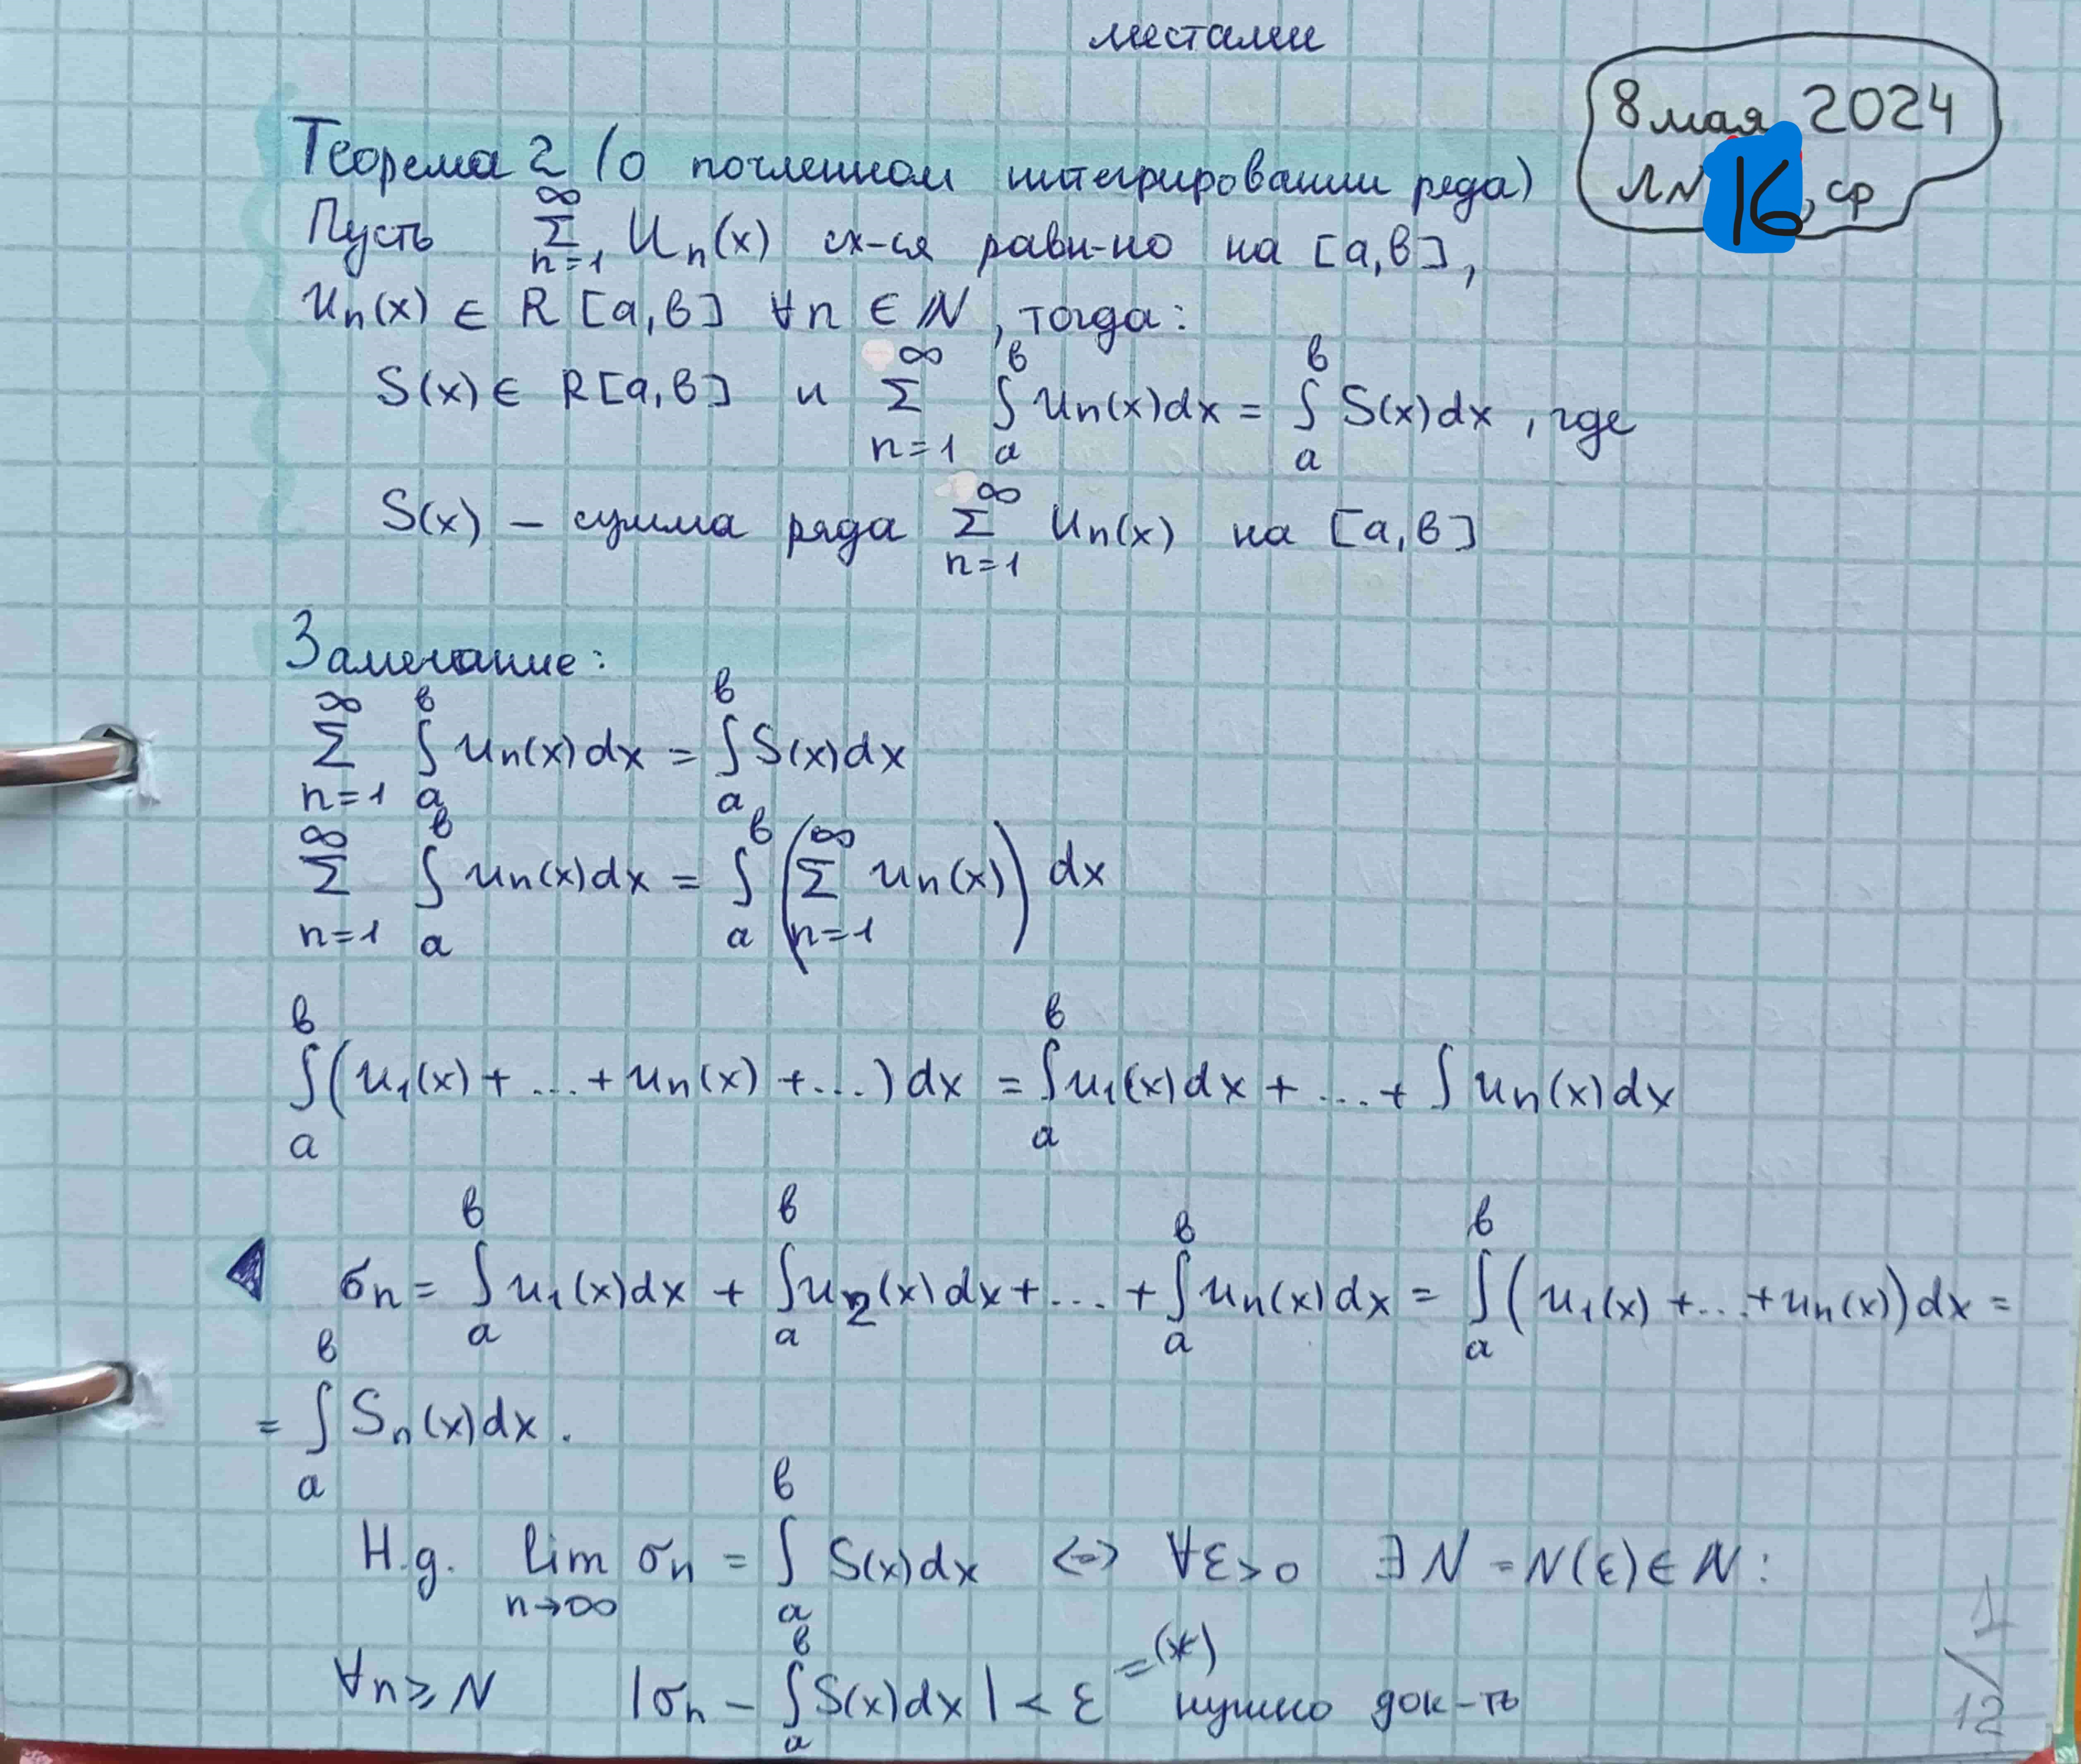 местами
8 мая 2024
ЛN 16, ср
Теорема 2 (о почленном интегрировании ряда)
Пусть ∞ Σ n=1 Un(x) сх-ся равн-но на [a,в],
Un(x) ∈ R [a,в] ∀n ∈ ℕ, тогда:
S(x) ∈ R[a,в] и ∞ Σ n=1 в ∫ a un(x)dx = в ∫ a S(x)dx, где
S(x) – сумма ряда ∞ Σ n=1 Un(x) на [a,в]
Замечание:
∞ Σ n=1 в ∫ a un(x)dx = в ∫ a S(x)dx
∞ Σ n=1 в ∫ a un(x)dx = в ∫ a (∞ Σ n=1 un(x)) dx
в ∫ a (u1(x) + ... + un(x) + ...) dx = в ∫ a u1(x)dx + ... + ∫ un(x)dx
◀ σn = в ∫ a u1(x)dx + в ∫ a u2(x)dx + ... + в ∫ a un(x)dx = в ∫ a (u1(x) + ... + un(x))dx =
= в ∫ a Sn(x)dx.
Н.д. lim n→∞ σn = в ∫ a S(x)dx <=> ∀ε>0 ∃N = N(ε) ∈ ℕ:
∀n ≥ N |σn – в ∫ a S(x)dx| < ε =(*) нужно док-ть
1/12